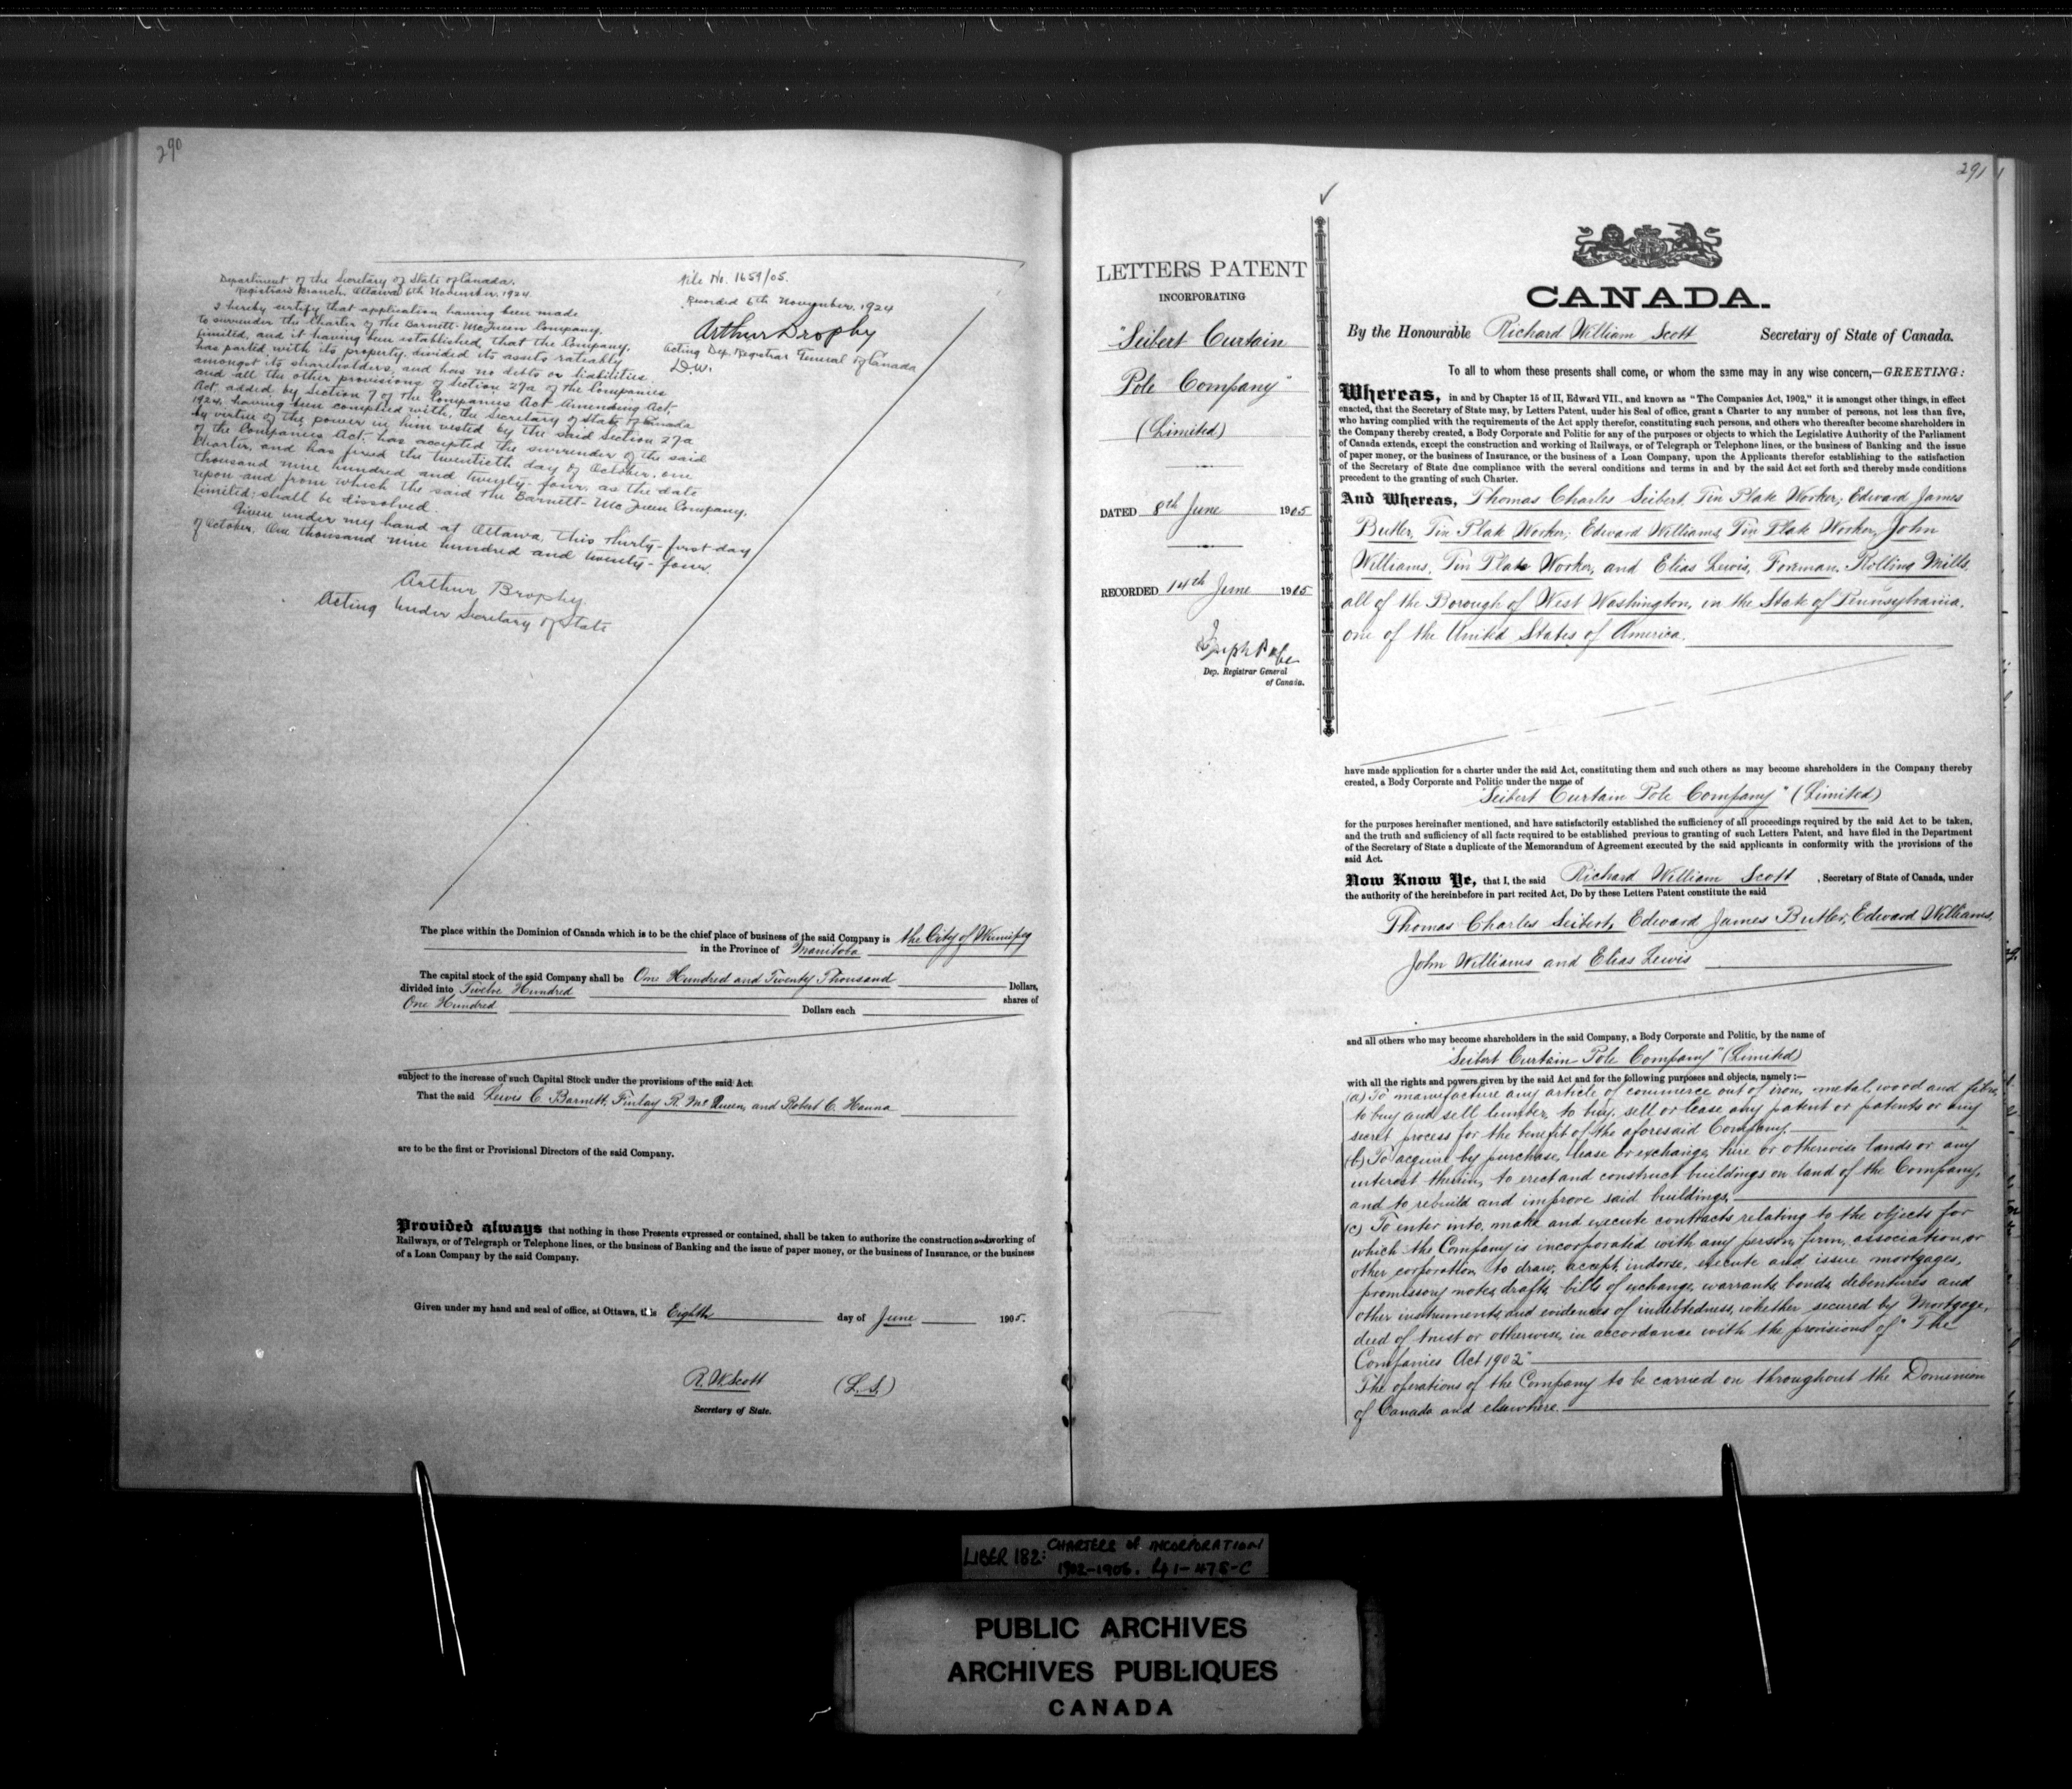 290
Department of the Secretary of State of Canada.
Registrar's Branch. Ottawa 6th November, 1924.
I hereby certify that application having been made
to surrender the Charter of The Barnett-McQueen Company,
Limited, and it having been established, that the Company,
has parted with its property, divided its assets rateably
amongst its shareholders, and has no debts or liabilities
and all the other provisions of Section 27a of the Companies
Act added by Section 7 of The Companies Act Amending Act,
1924, having been complied with, the Secretary of State of Canada
by virtue of the power in him vested by the said Section 27a
of the Companies Act, has accepted the surrender of the said
Charter, and has fixed the twentieth day of October, one
thousand nine hundred and twenty-four, as the date
upon and from which the said The Barnett-McQueen Company,
Limited, shall be dissolved.
Given under my hand at Ottawa, this thirty-first day
of October, One thousand nine hundred and twenty-four.
Arthur Brophy
Acting Under Secretary of State
File No. 1659/05.
Recorded 6th November, 1924
Arthur Brophy
Acting Dep. Registrar General of Canada
D.W.
The place within the Dominion of Canada which is to be the chief place of business of the said Company is the City of Winnipeg
in the Province of Manitoba
The capital stock of the said Company shall be One Hundred and Twenty Thousand Dollars,
divided into Twelve Hundred shares of
One Hundred Dollars each
subject to the increase of such Capital Stock under the provisions of the said Act.
That the said Lewis C. Barnett, Finlay R. McQueen, and Robert C. Hanna
are to be the first or Provisional Directors of the said Company.
Provided always that nothing in these Presents expressed or contained, shall be taken to authorize the construction and working of
Railways, or of Telegraph or Telephone lines, or the business of Banking and the issue of paper money, or the business of Insurance, or the business
of a Loan Company by the said Company.
Given under my hand and seal of office, at Ottawa, this Eighth day of June 1905.
R. W. Scott (L.S.)
Secretary of State.
291
LETTERS PATENT
INCORPORATING
"Seibert Curtain
Pole Company"
(Limited)
DATED 8th June 1905
RECORDED 14th June 1905
Joseph Pope
Dep. Registrar General
of Canada.
CANADA.
By the Honourable Richard William Scott Secretary of State of Canada.
To all to whom these presents shall come, or whom the same may in any wise concern,—GREETING:
Whereas, in and by Chapter 15 of II, Edward VII., and known as "The Companies Act, 1902," it is amongst other things, in effect
enacted, that the Secretary of State may, by Letters Patent, under his Seal of office, grant a Charter to any number of persons, not less than five,
who having complied with the requirements of the Act apply therefor, constituting such persons, and others who thereafter become shareholders in
the Company thereby created, a Body Corporate and Politic for any of the purposes or objects to which the Legislative Authority of the Parliament
of Canada extends, except the construction and working of Railways, or of Telegraph or Telephone lines, or the business of Banking and the issue
of paper money, or the business of Insurance, or the business of a Loan Company, upon the Applicants therefor establishing to the satisfaction
of the Secretary of State due compliance with the several conditions and terms in and by the said Act set forth and thereby made conditions
precedent to the granting of such Charter.
And Whereas, Thomas Charles Seibert, Tin Plate Worker; Edward James
Butler, Tin Plate Worker; Edward Williams, Tin Plate Worker, John
Williams, Tin Plate Worker, and Elias Lewis, Foreman, Rolling Mills,
all of the Borough of West Washington, in the State of Pennsylvania,
one of the United States of America,
have made application for a charter under the said Act, constituting them and such others as may become shareholders in the Company thereby
created, a Body Corporate and Politic under the name of
"Seibert Curtain Pole Company" (Limited)
for the purposes hereinafter mentioned, and have satisfactorily established the sufficiency of all proceedings required by the said Act to be taken,
and the truth and sufficiency of all facts required to be established previous to granting of such Letters Patent, and have filed in the Department
of the Secretary of State a duplicate of the Memorandum of Agreement executed by the said applicants in conformity with the provisions of the
said Act.
Now Know Ye, that I, the said Richard William Scott, Secretary of State of Canada, under
the authority of the hereinbefore in part recited Act, Do by these Letters Patent constitute the said
Thomas Charles Seibert, Edward James Butler, Edward Williams,
John Williams and Elias Lewis
and all others who may become shareholders in the said Company, a Body Corporate and Politic, by the name of
"Seibert Curtain Pole Company" (Limited)
with all the rights and powers given by the said Act and for the following purposes and objects, namely:—
(a) To manufacture any article of commerce out of iron, metal, wood and fibre,
to buy and sell lumber, to buy, sell or lease any patent or patents or any
secret process for the benefit of the aforesaid Company.
(b) To acquire by purchase, lease or exchange, hire or otherwise lands or any
interest therein, to erect and construct buildings on land of the Company,
and to rebuild and improve said buildings,
(c) To enter into, make and execute contracts relating to the objects for
which the Company is incorporated with any person, firm, association, or
other corporation, to draw, accept, indorse, execute and issue mortgages,
promissory notes, drafts, bills of exchange, warrants, bonds, debentures and
other instruments and evidences of indebtedness, whether secured by Mortgage,
deed of trust or otherwise, in accordance with the provisions of "The
Companies Act 1902"
The operations of the Company to be carried on throughout the Dominion
of Canada and elsewhere.
LIBER 182: CHARTERS OF INCORPORATION
1902-1906.
PUBLIC ARCHIVES
ARCHIVES PUBLIQUES
CANADA